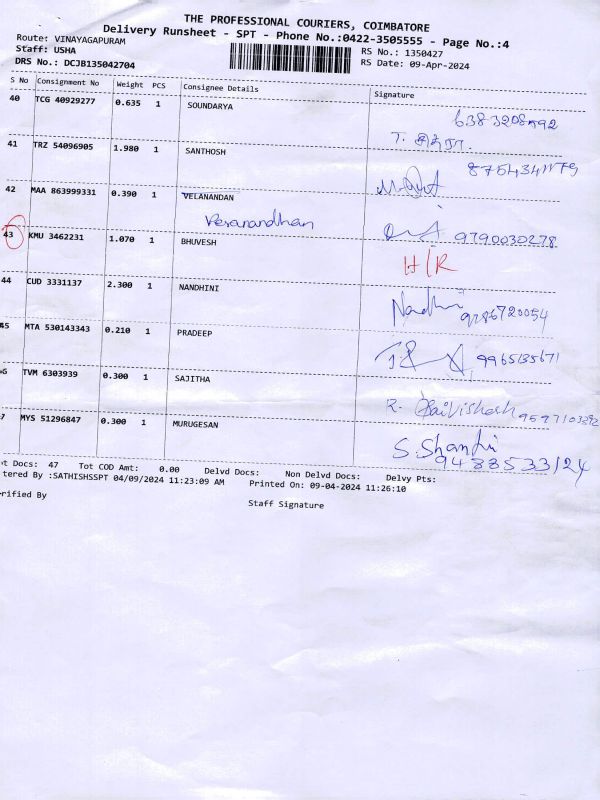 THE PROFESSIONAL COURIERS, COIMBATORE
Delivery Runsheet - SPT - Phone No.:0422-3505555 - Page No.:4
Route: VINAYAGAPURAM
Staff: USHA
RS No.: 1350427
DRS No.: DCJB135042704
RS Date: 09-Apr-2024
S No Consignment No Weight PCS Consignee Details Signature
40 TCG 40929277 0.635 1 SOUNDARYA
41 TRZ 54096905 1.980 1 SANTHOSH
42 MAA 863999331 0.390 1 VELANANDAN
Veranandhan
9790030278
43 KMU 3462231 1.070 1 BHUVESH
H/R
44 CUD 3331137 2.300 1 NANDHINI
Nandhini 9286720054
45 MTA 530143343 0.210 1 PRADEEP
9965135671
6 TVM 6303939 0.300 1 SAJITHA
R.
7 MYS 51296847 0.300 1 MURUGESAN
S. Shanthi
9488533124
t Docs: 47 Tot COD Amt: 0.00 Delvd Docs: Non Delvd Docs: Delvy Pts:
tered By :SATHISHSSPT 04/09/2024 11:23:09 AM Printed On: 09-04-2024 11:26:10
rified By
Staff Signature